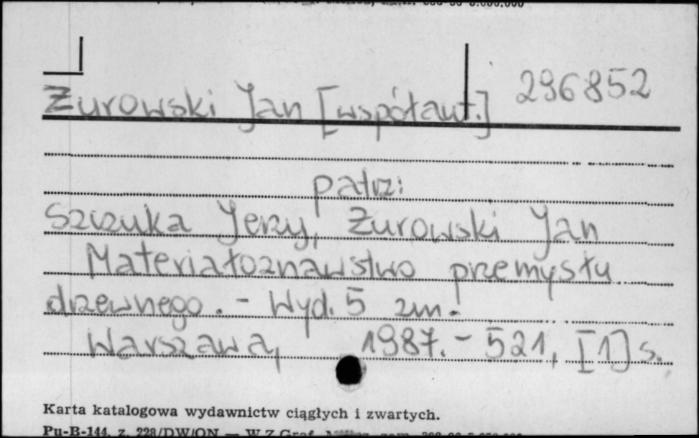 296852
Żurowski Jan [współaut.]
patrz:
Szczuka Jerzy, Żurowski Jan
Materiałoznawstwo przemysłu
drzewnego. - Wyd. 5 zm.
Warszawa, 1987. - 521, [1] s.
Karta katalogowa wydawnictw ciągłych i zwartych.
Pu-B-144, z. 228/DW/ON — W.Z.Graf.